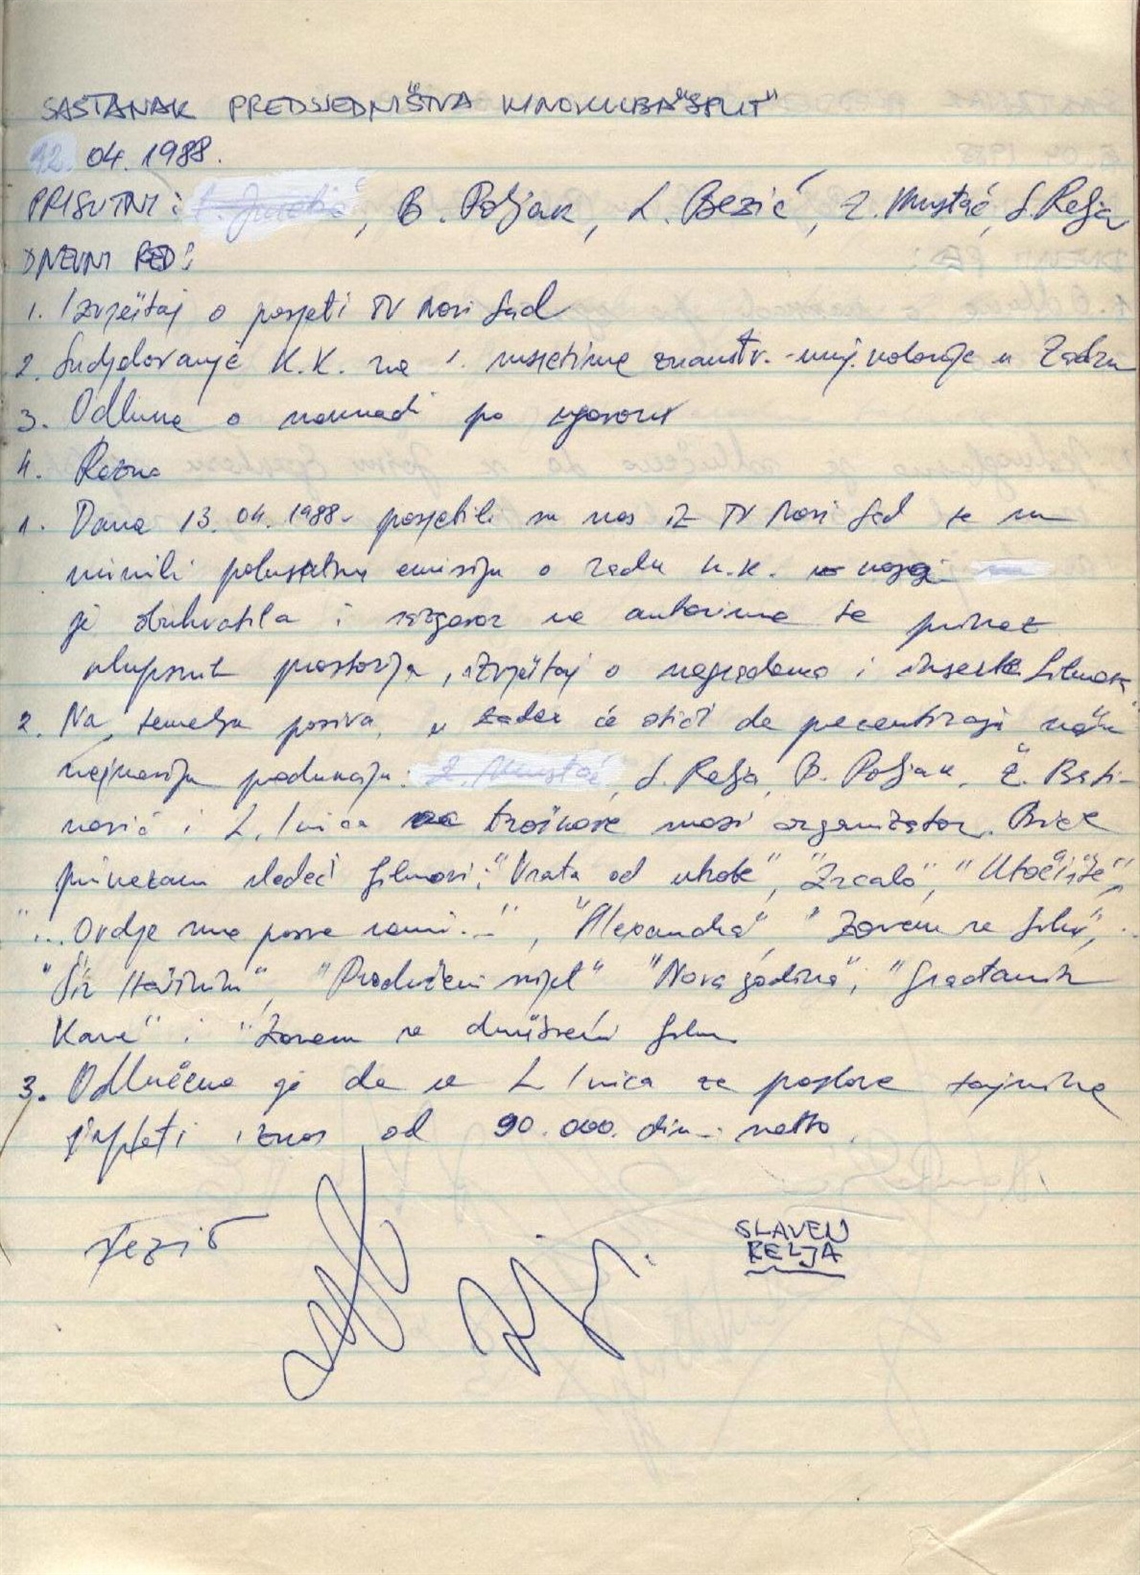 SASTANAK PREDSJEDNIŠTVA KINOKLUBA "SPLIT"
12. 04. 1988.
PRISUTNI: B. Poljak, L. Bezić, Z. Mustać, S. Relja
DNEVNI RED:
1. Izvještaj o posjeti TV Novi Sad
2. Sudjelovanje K.K. na 1. znanstv.-umj. u Zadru
3. Odluka o po ugovoru
4. Razno
1. Dana 13. 04. 1988. posjetili su nas iz TV Novi Sad te su
snimili polusatnu emisiju o radu K.K. koja
je obuhvatila i razgovor sa autorima te prikaz
prostorija, izvještaj o nagradama i inserte filmova
2. Na temelju poziva, u Zadar će otići da prezentiraju našu
najnoviju produkciju: Z. Mustać, S. Relja, B. Poljak,
i L. Ivica troškove snosi organizator. Biće
prikazani sledeći filmovi: "Vrata od uboke", "Zrcalo", "Utočište",
"...Ovdje smo posve sami...", "Alexandra" "Zovem se film",
"Produženi svijet" "Nova godina", "Građanin
Kane" i "Zovem se društveni film
3. Odlučeno je da se L Ivica za poslove tajnika
isplati iznos od 90.000. din. netto.
SLAVEN
RELJA